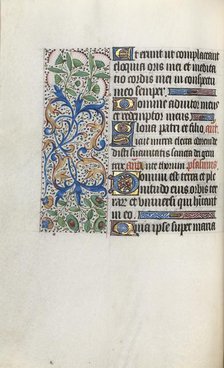 Et erunt ut complaceant
eloquia oris mei et medita
tio cordis mei in conspectu
tuo semper.
Domine adiutor meus
et redemptor meus
Gloria patri et filio
sicut mirra electa odorem de
disti suavitatis sancta dei geni
trix psalmus
Domini est terra et ple
nitudo eius orbis ter
rar et universi qui hitant
in eo
Quia ipse super maria